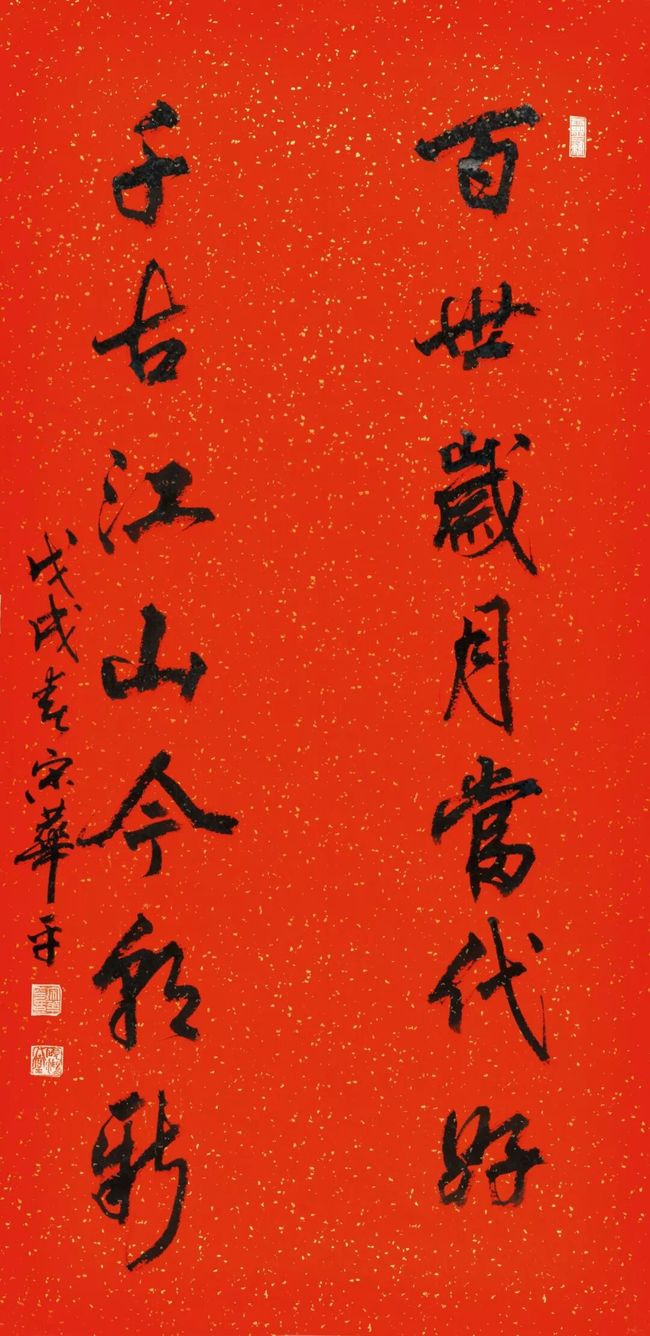 百世歲月當代好
千古江山今朝新
戊戌春宋華平